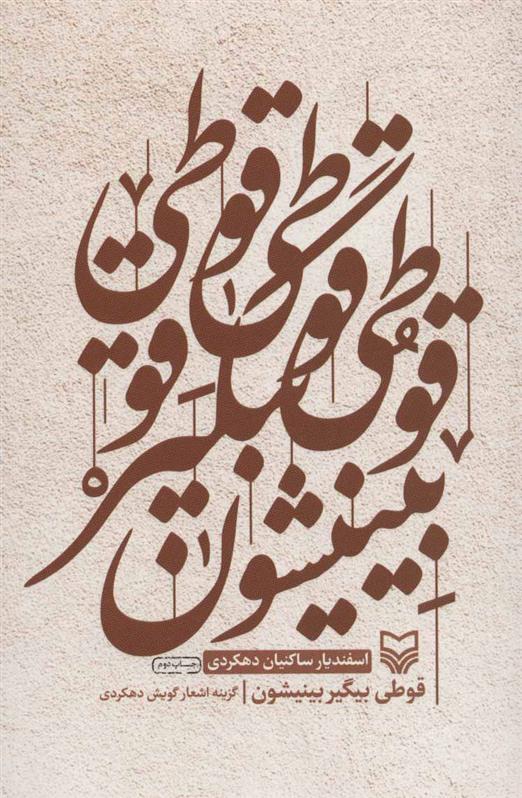 قوطی قوطی قوطی
بیگیر
بینیشون
اسفندیار ساکنیان دهکردی
چاپ دوم
قوطی بیگیر بینیشون | گزینه اشعار گویش دهکردی